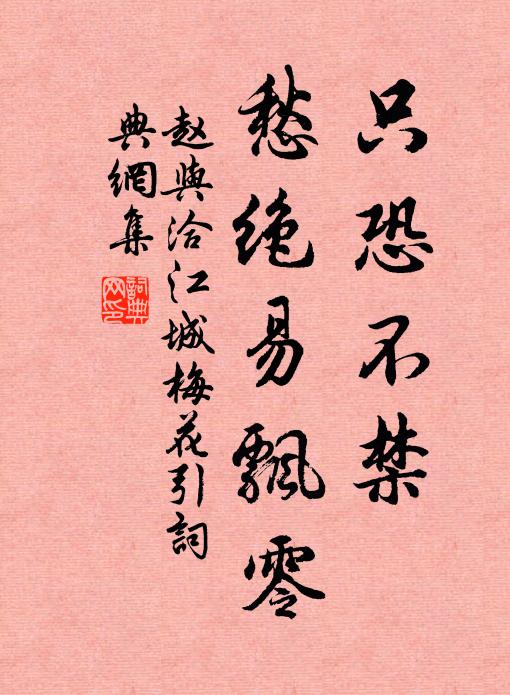 只恐不禁
愁绝易飄零
赵與洽江城梅花引詞
典網集
詞典
网印